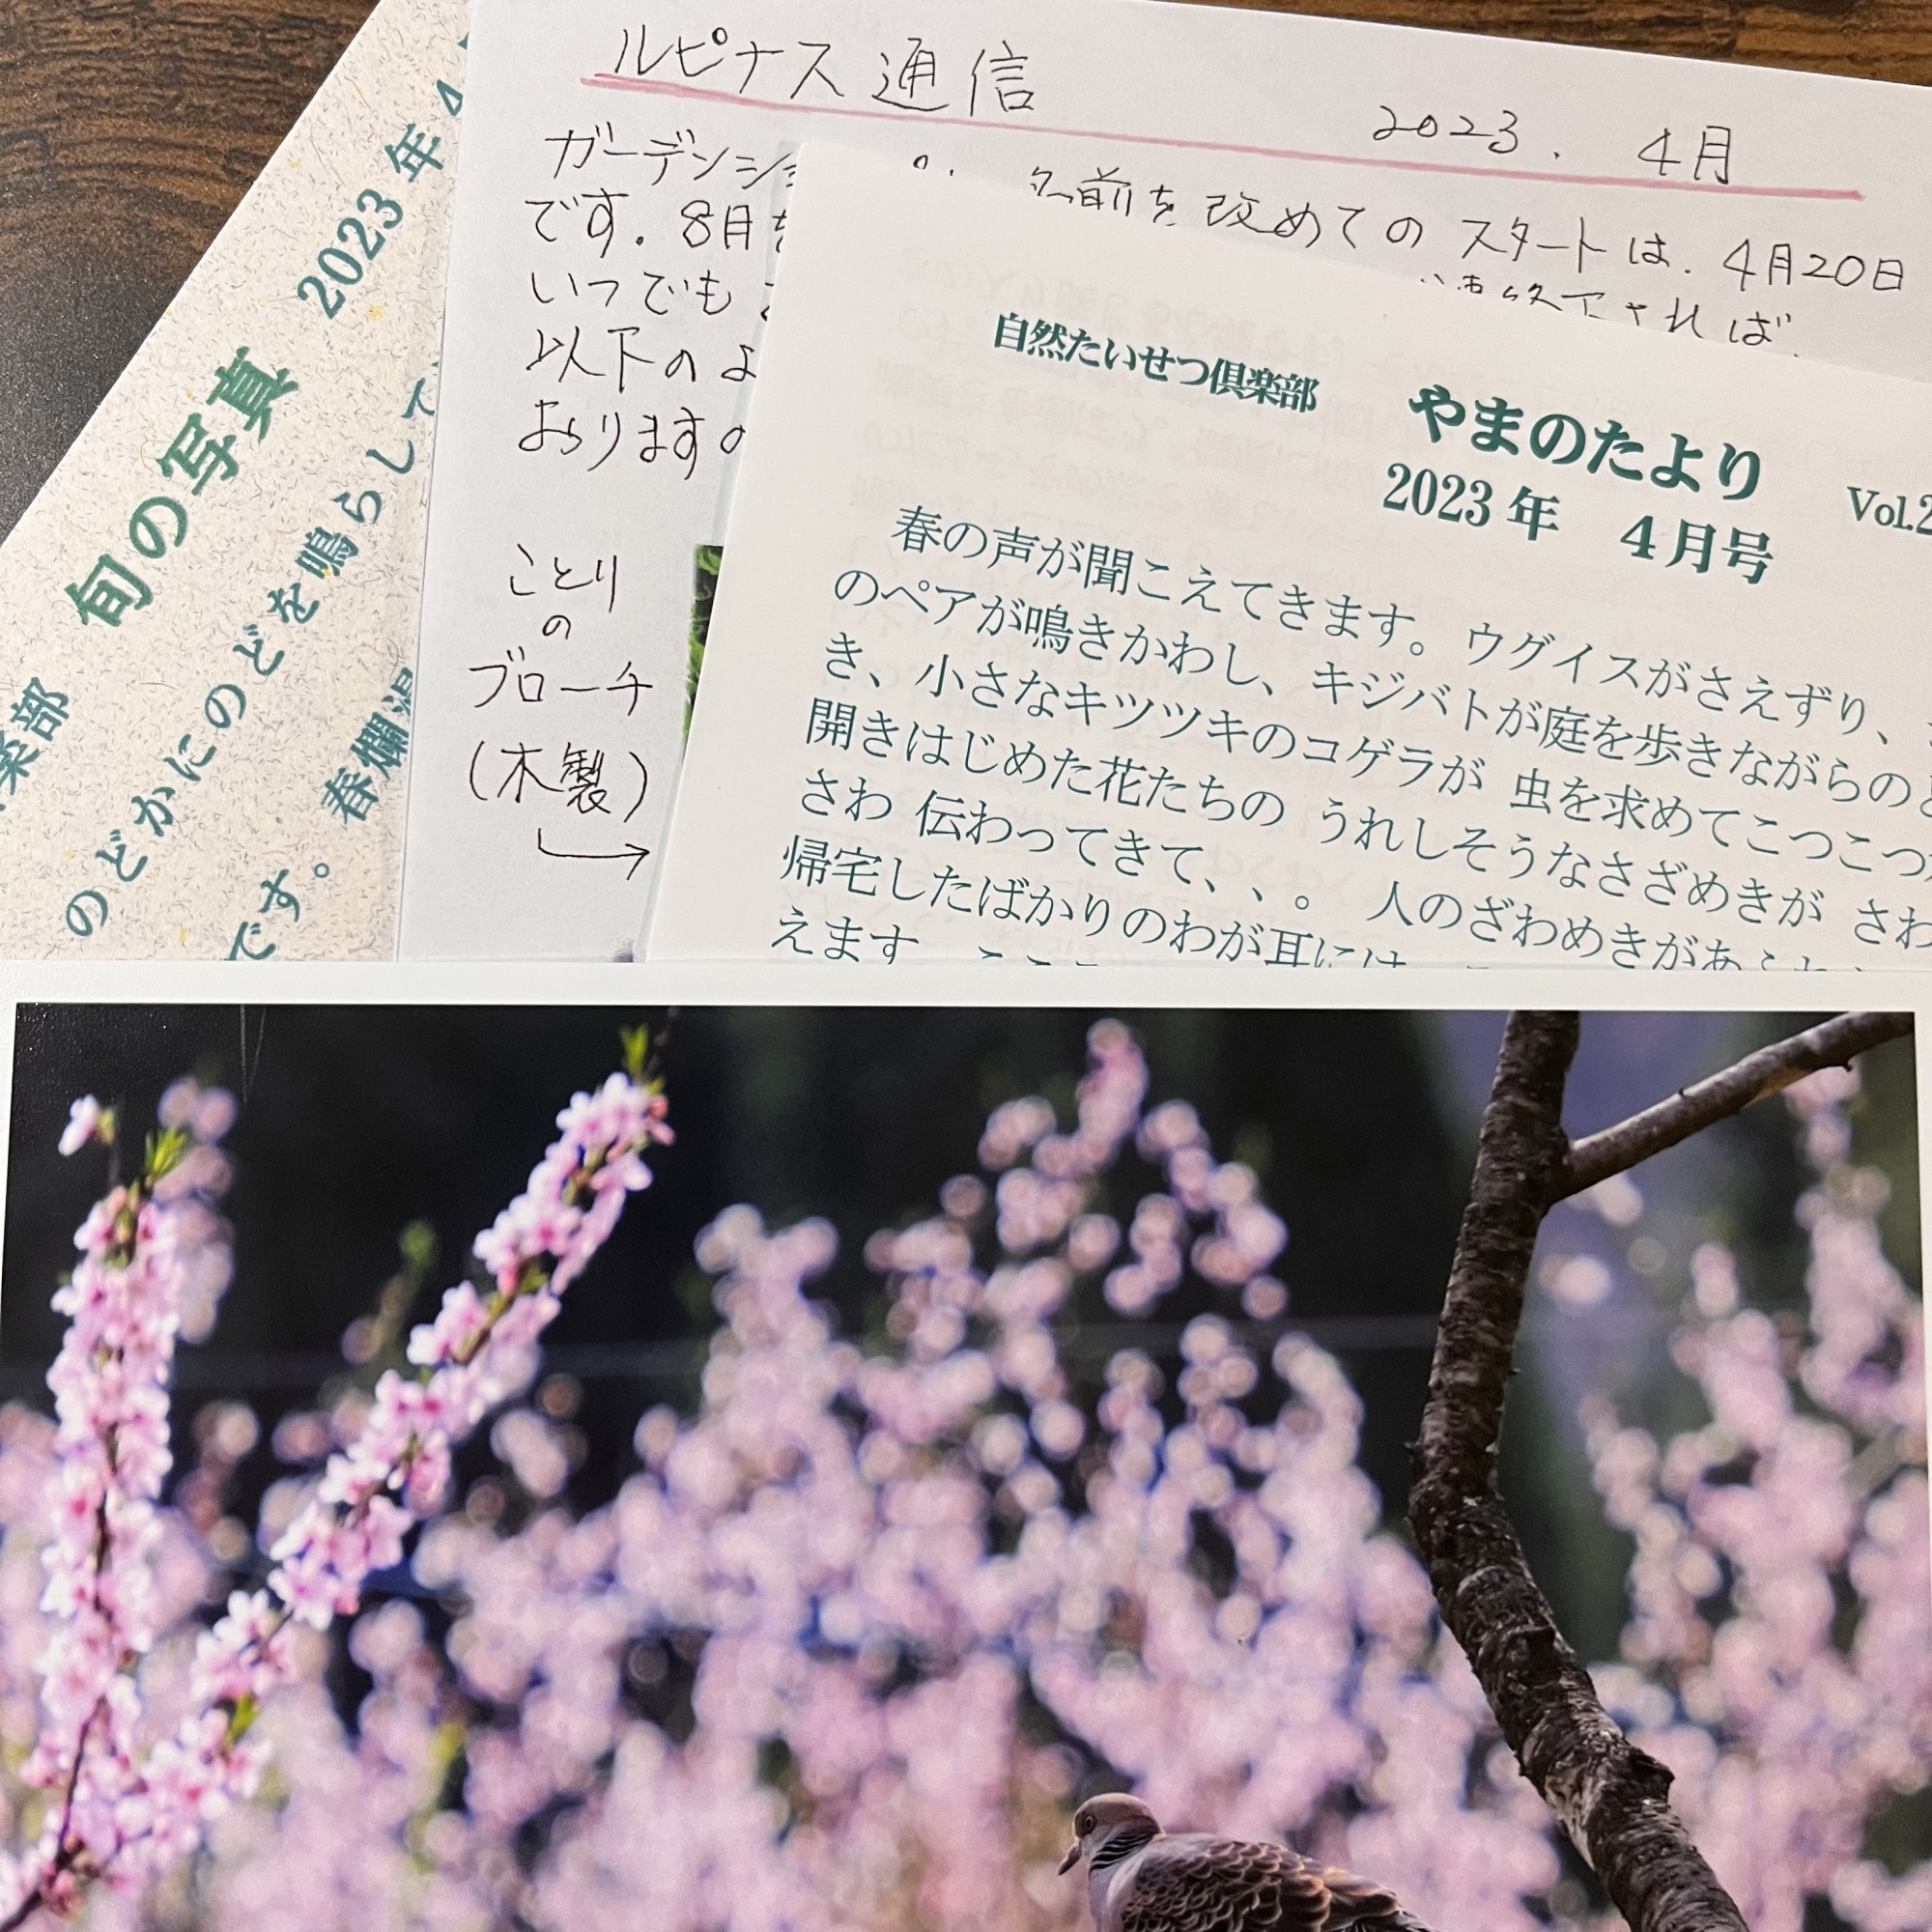 旬の写真 2023年4
楽部
のどかにのどを鳴らして
です。 春爛漫
ルピナス通信
2023. 4月
ガーデンショ 名前を改めてのスタートは、4月20日
です。8月
いつでも されば、
以下のよ
おりますの
ことり
の
ブローチ
(木製)
自然たいせつ倶楽部 やまのたより Vol.2
2023年 4月号
春の声が聞こえてきます。ウグイスがさえずり、
のペアが鳴きかわし、キジバトが庭を歩きながらのど
き、小さなキツツキのコゲラが 虫を求めてこつこつ
開きはじめた花たちの うれしそうなさざめきが さわ
さわ 伝わってきて、、。 人のざわめきがあふれ
帰宅したばかりのわが耳には
えます